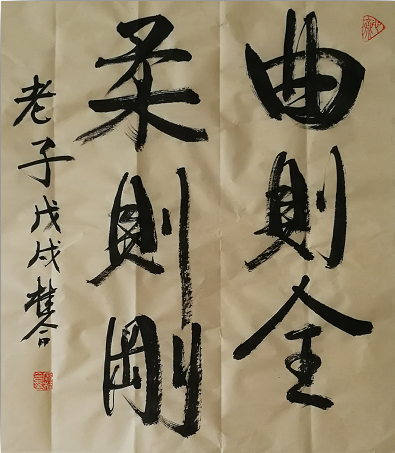 曲則全
柔則剛
老子戊戌